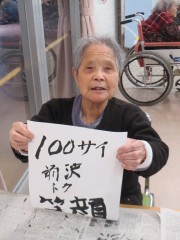 100サイ
前沢
トク
笑顔